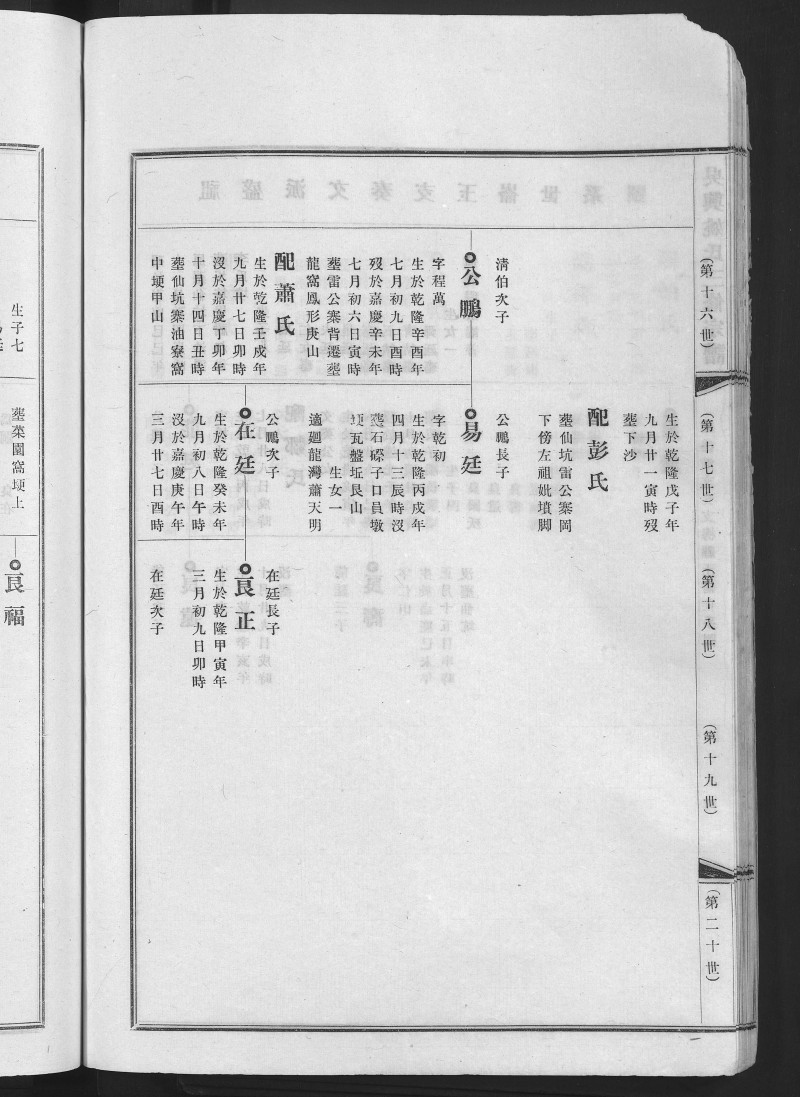 (第十六世)
(第十七世)
(第十八世)
(第十九世)
(第二十世)
清伯次子
公鵬
字程萬
生於乾隆辛酉年
七月初九日酉時
歿於嘉慶辛未年
七月初六日寅時
塟雷公寨背遷塟
龍窩鳳形庚山
配蕭氏
生於乾隆壬戌年
九月廿七日卯時
沒於嘉慶丁卯年
十月十四日丑時
塟仙坑寨油寮窩
中埂甲山
生於乾隆戊子年
九月廿一寅時歿
塟下沙
配彭氏
塟仙坑雷公寨岡
下傍左祖妣墳脚
公鵬長子
易廷
字乾初
生於乾隆丙戌年
四月十三辰時沒
塟石磜子口員墩
埂瓦盤坵艮山
生女一
適廻龍灣蕭天明
公鵬次子
在廷
生於乾隆癸未年
九月初八日午時
沒於嘉慶庚午年
三月廿七日酉時
在廷長子
艮正
生於乾隆甲寅年
三月初九日卯時
在廷次子
生子七
塟菜園窩埂上
艮福